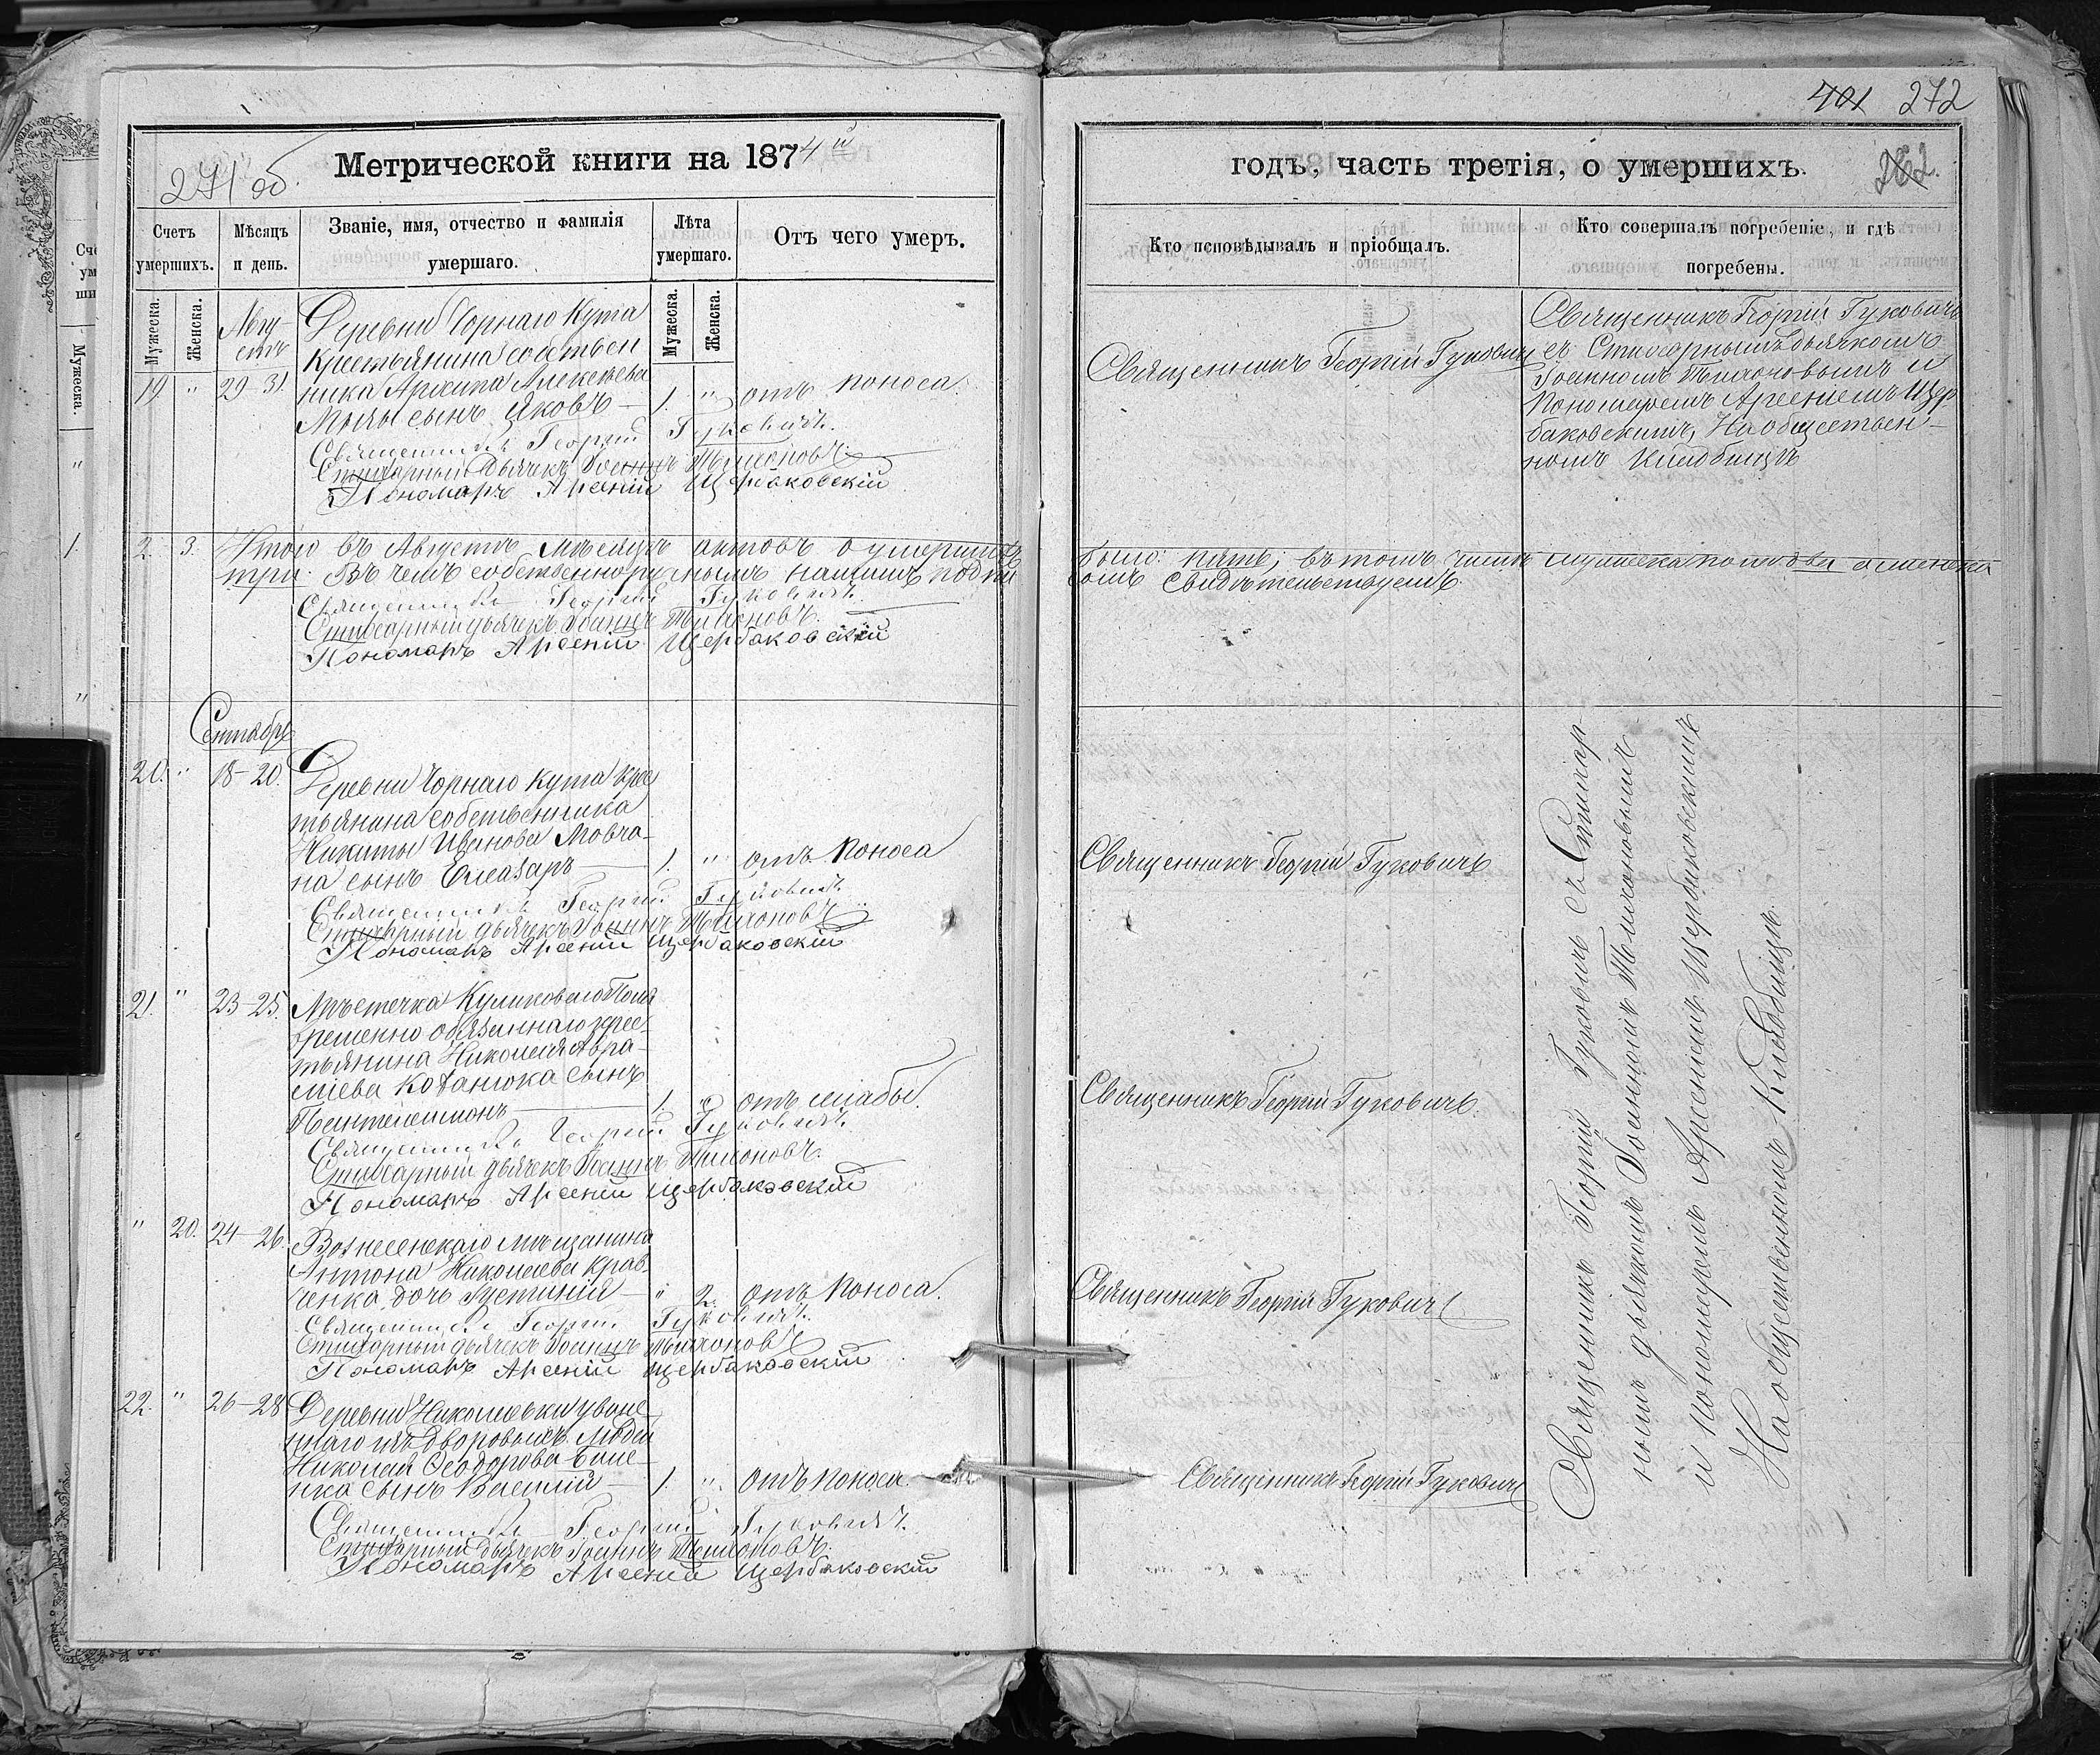 401 272
271 об.
Метрической книги на 1874й
годъ, часть третія, о умершихъ.
262.
Счетъ умершихъ.
Мѣсяцъ и день.
Званіе, имя, отчество и фамилія умершаго.
Лѣта умершаго.
Отъ чего умеръ.
Кто исповѣдывалъ и пріобщалъ.
Кто совершалъ погребеніе, и гдѣ погребены.
Мужеска.
Женска.
Мужеска.
Женска.
Авгу-
стъ
19 " 29 31
Деревни Чорнаго Кута
крестьянина собствен
ника Архипа Алексѣева
сынъ Яковъ —
1. " отъ поноса.
Священникъ Георгій Гуковичъ.
Стихарный дьячекъ Іоаннъ Тихоновъ
Пономарь Арсеній Щербаковскій
Священникъ Георгій Гуковичъ
Священникъ Георгій Гуковичъ
съ Стихарнымъ дьячкомъ
Іоанномъ Тихоновымъ и
Пономаремъ Арсеніемъ Щер
баковскимъ, На обществен-
номъ кладбищѣ
2. 3. Итого въ Августѣ мѣсяцѣ актовъ о умершихъ
было: пять; въ томъ числѣ мужеска пола два а женска
три. Въ чемъ собственноручнымъ нашимъ подпи
сомъ свидѣтельствуемъ
Священникъ Георгій Гуковичъ.
Стихарный дьячекъ Іоаннъ Тихоновъ.
Пономарь Арсеній Щербаковскій
Сентябрь
20. " 18-20.
Деревни Чорнаго Кута крес
тьянина собственника
Никиты Иванова Мовча-
на сынъ Елеазаръ —
1. " отъ поноса
Священникъ Георгій Гуковичъ.
Стихарный дьячекъ Іоаннъ Тихоновъ
Пономарь Арсеній Щербаковскій
Священникъ Георгій Гуковичъ
21. " 23-25.
Мѣстечка Куликового Поля
временно обязаннаго крес-
тьянина Николая Авра-
міева сынъ
Пантелеимонъ —
1. " отъ слабы.
Священникъ Георгій Гуковичъ.
Стихарный дьячекъ Іоаннъ Тихоновъ.
Пономарь Арсеній Щербаковскій
Священникъ Георгій Гуковичъ.
" 20. 24-26.
Вознесенскаго мѣщанина
Антона Николаева Крав-
ченка, дочь Іустинія —
" 2. отъ поноса.
Священникъ Георгій Гуковичъ.
Стихарный дьячекъ Іоаннъ Тихоновъ
Пономарь Арсеній Щербаковскій
Священникъ Георгій Гуковичъ
22. " 26-28
Деревни Николаевки уволе-
ннаго изъ дворовыхъ людей
Николая Ѳеодорова
сынъ Василій —
1. " отъ поноса.
Священникъ Георгій Гуковичъ.
Стихарный дьячекъ Іоаннъ Тихоновъ.
Пономарь Арсеній Щербаковскій
Священникъ Георгій Гуковичъ
Священникъ Георгій Гуковичъ съ Стихар-
нымъ дьячкомъ Іоанномъ Тихоновымъ
и Пономаремъ Арсеніемъ Щербаковскимъ
На общественномъ кладбищѣ.